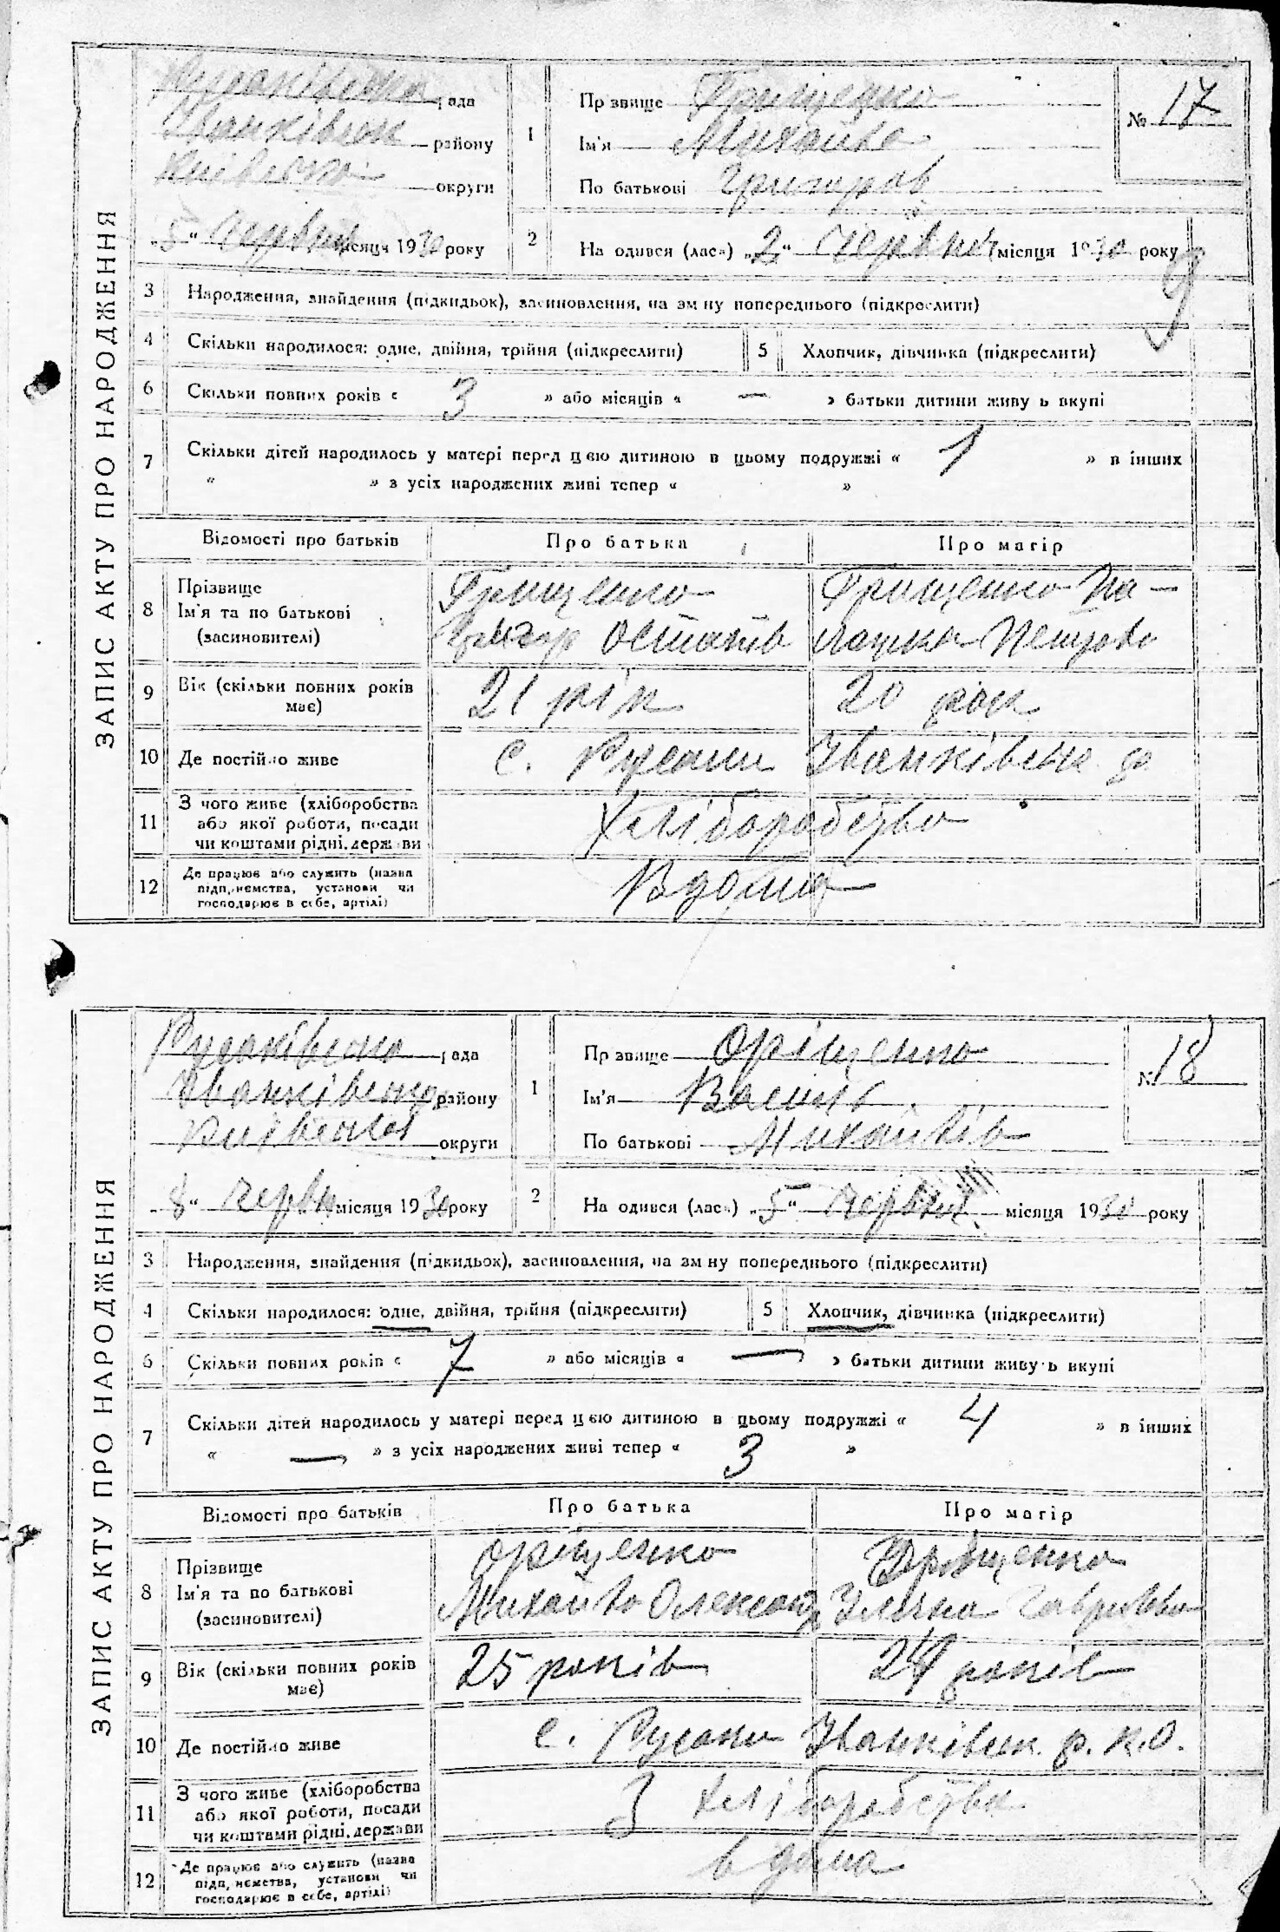 ЗАПИС АКТУ ПРО НАРОДЖЕННЯ
Русаківська рада
Іванківськ району
Київсько округи
„5“ червня місяця 1930 року
1
Пр звище Грищенко
Ім'я Михайло
По батькові Григоров
№ 17
2
На одився (лась) „2“ червня місяця 1930 року
3 Народження, знайдення (підкидьок), засиновлення, на зм ну попереднього (підкреслити)
4 Скільки народилося: одне, двійня, трійня (підкреслити)
5 Хлопчик, дівчинка (підкреслити)
6 Скільки повних років « 3 » або місяців « — » батьки дитини живу ь вкупі
7 Скільки дітей народилось у матері перед цією дитиною в цьому подружжі « 1 » в інших
“ » з усіх народжених живі тепер « »
Відомості про батьків Про батька Про матір
8 Прізвище
Ім'я та по батькові
(засиновителі)
Грищенко
Григор Остапів
Грищенко Па-
лажка Петрова
9 Вік (скільки повних років
має)
21 рік 20 рок
10 Де постійно живе с. Русаки Іванківськ
11 З чого живе (хліборобства
або якої роботи, посади
чи коштами рідні, держави
Хліборобство
12 Де працює або служить (назва
підприємства, установи чи
господарює в себе, артілі)
Вдома
ЗАПИС АКТУ ПРО НАРОДЖЕННЯ
Русаківсько рада
Іванківсько району
Київської округи
„8“ червн місяця 1930 року
1
Пр звище Оріщенко
Ім'я Василь
По батькові Михайлів
№ 18
2
На одився (лась) „5“ червня місяця 1930 року
3 Народження, знайдення (підкидьок), засиновлення, на зм ну попереднього (підкреслити)
4 Скільки народилося: одне, двійня, трійня (підкреслити)
5 Хлопчик, дівчинка (підкреслити)
6 Скільки повних років « 7 » або місяців « — » батьки дитини живу ь вкупі
7 Скільки дітей народилось у матері перед цією дитиною в цьому подружжі « 4 » в інших
“ — » з усіх народжених живі тепер « 3 »
Відомості про батьків Про батька Про матір
8 Прізвище
Ім'я та по батькові
(засиновителі)
Оріщенко
Михайло Олександ
Оріщенко
Улячна Гаврилівна
9 Вік (скільки повних років
має)
25 років 24 років
10 Де постійно живе с. Русаки Іванківськ. р. К.О.
11 З чого живе (хліборобства
або якої роботи, посади
чи коштами рідні, держави
З хліборобства
12 Де працює або служить (назва
підприємства, установи чи
господарює в себе, артілі)
вдома